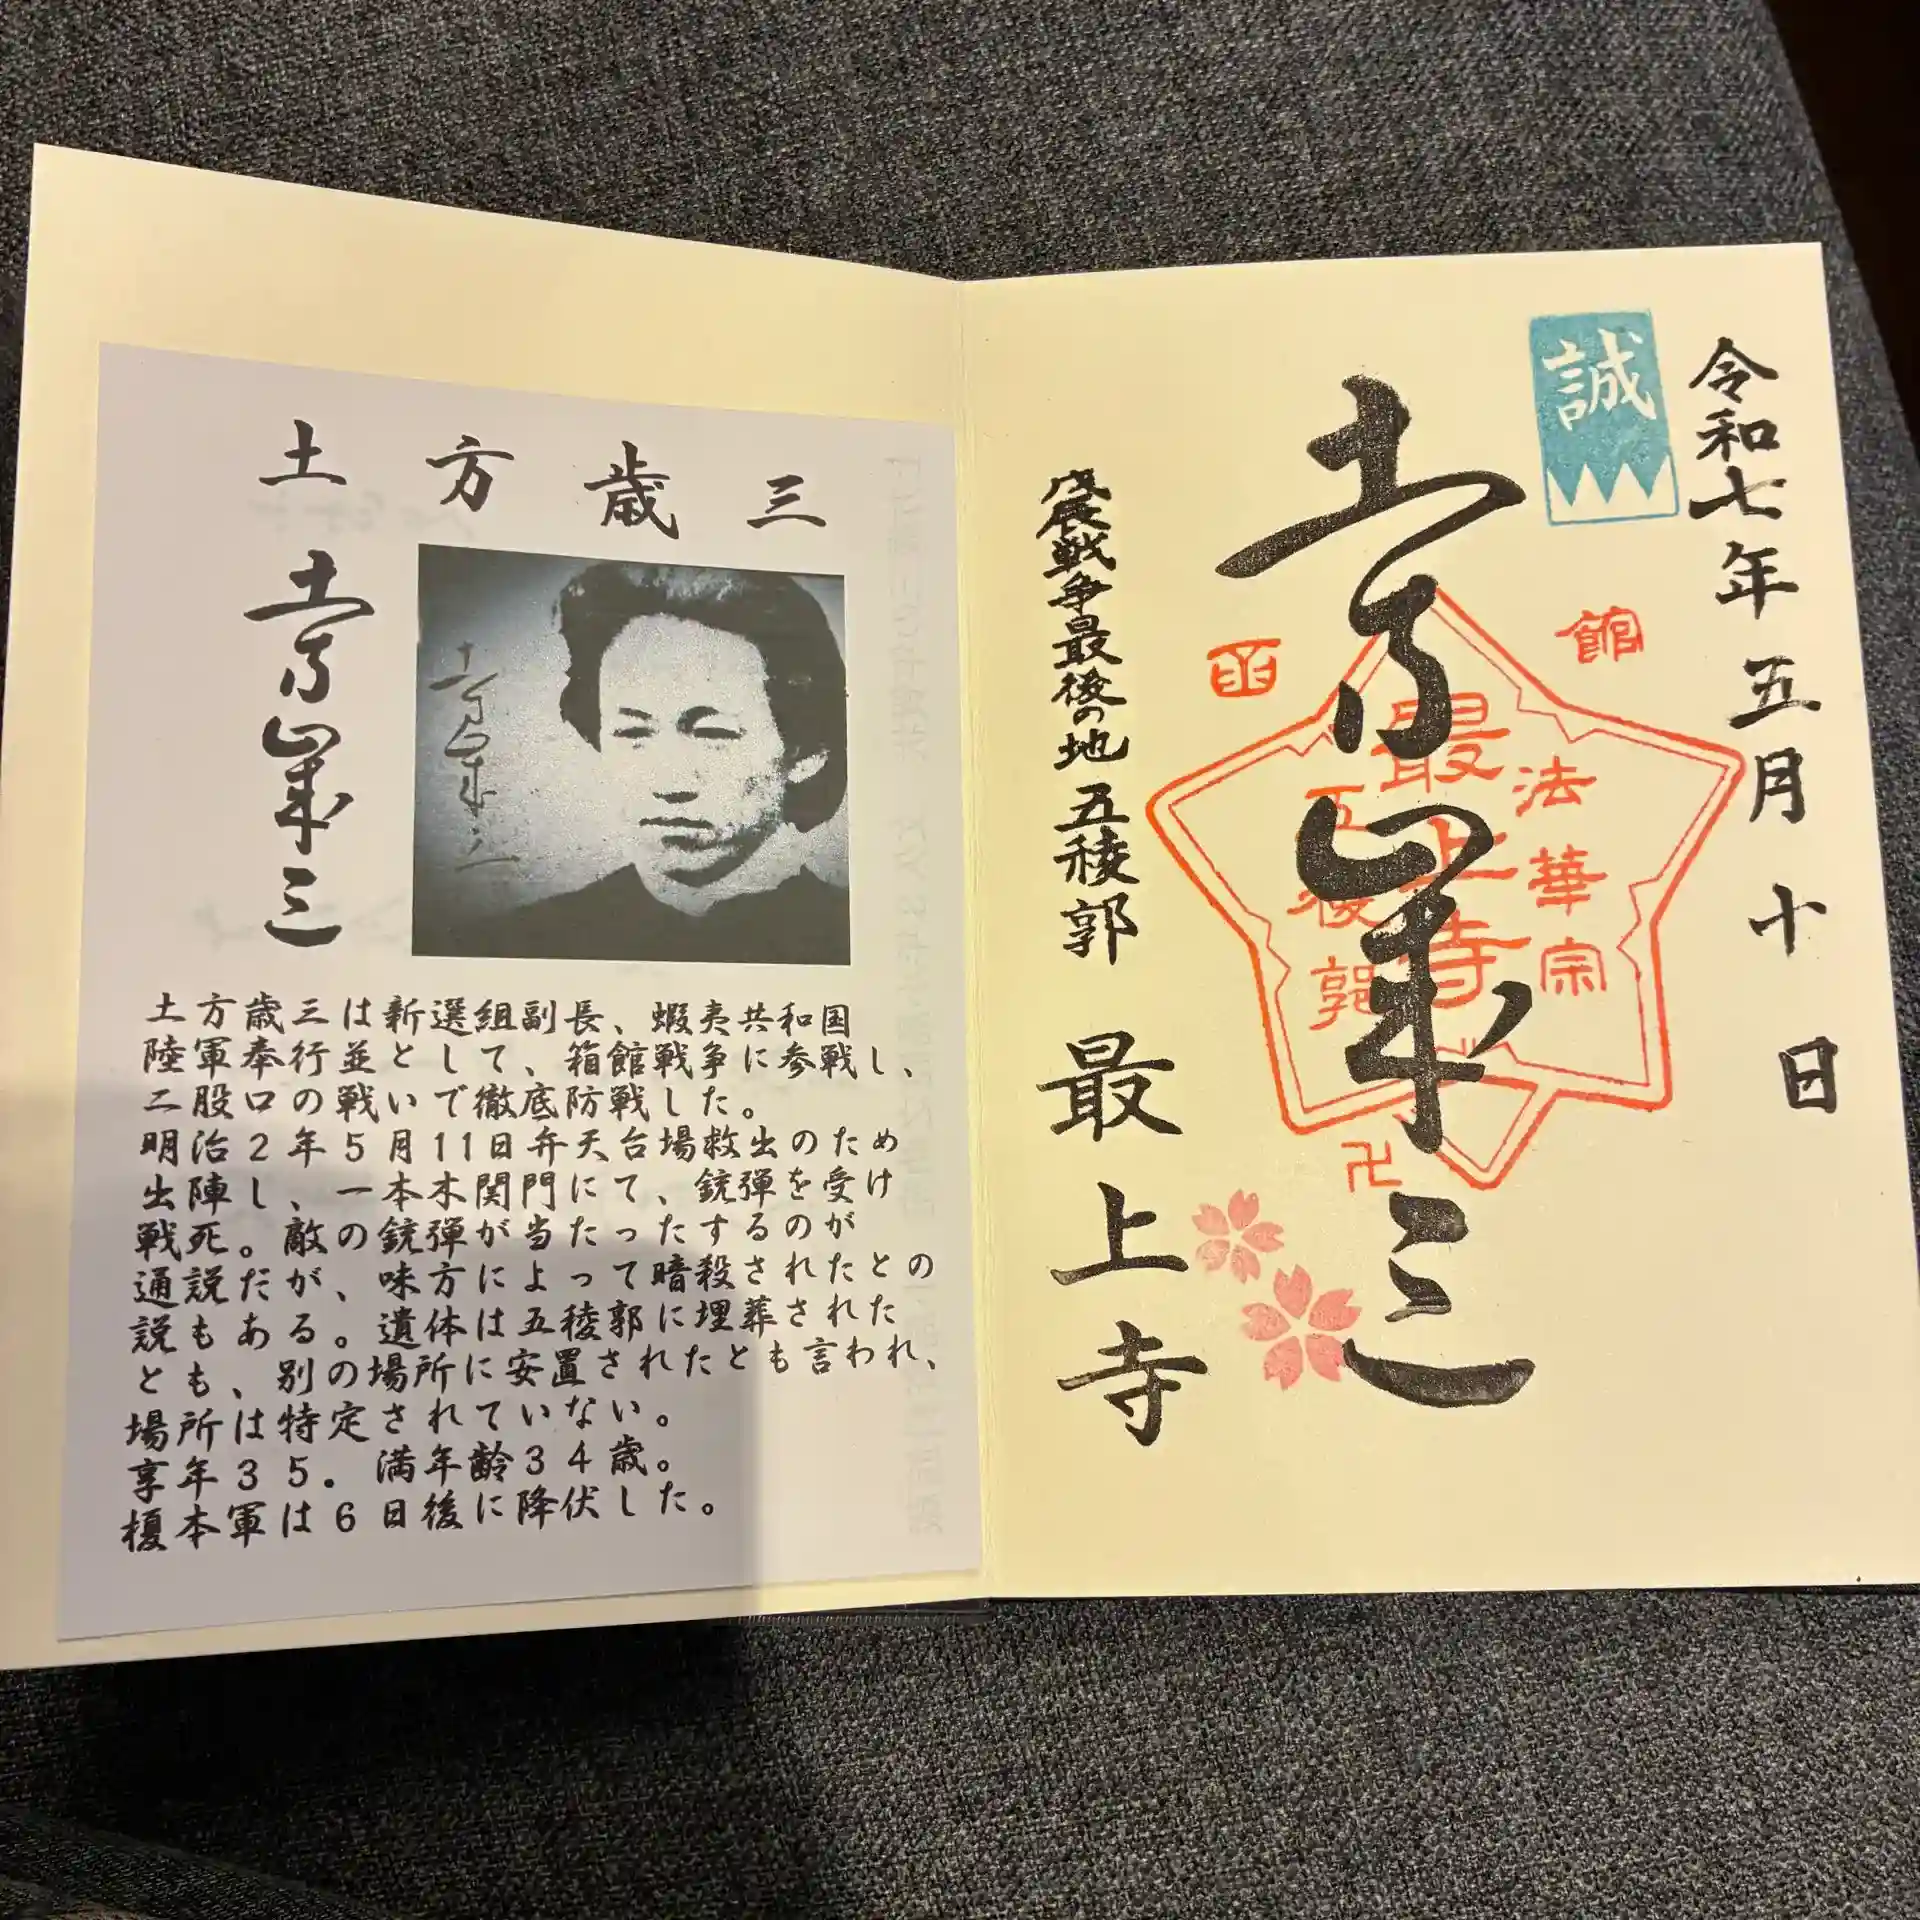 土方歳三
土方歳三
土方歳三は新選組副長、蝦夷共和国
陸軍奉行並として、箱館戦争に参戦し、
二股口の戦いで徹底防戦した。
明治2年5月11日弁天台場救出のため
出陣し、一本木関門にて、銃弾を受け
戦死。敵の銃弾が当たったするのが
通説だが、味方によって暗殺されたとの
説もある。遺体は五稜郭に埋葬された
とも、別の場所に安置されたとも言われ、
場所は特定されていない。
享年35．満年齢34歳。
榎本軍は6日後に降伏した。
令和七年五月十日
誠
土方歳三
函館
法華宗
最上寺
五稜郭
卍
戊辰戦争最後の地 五稜郭 最上寺